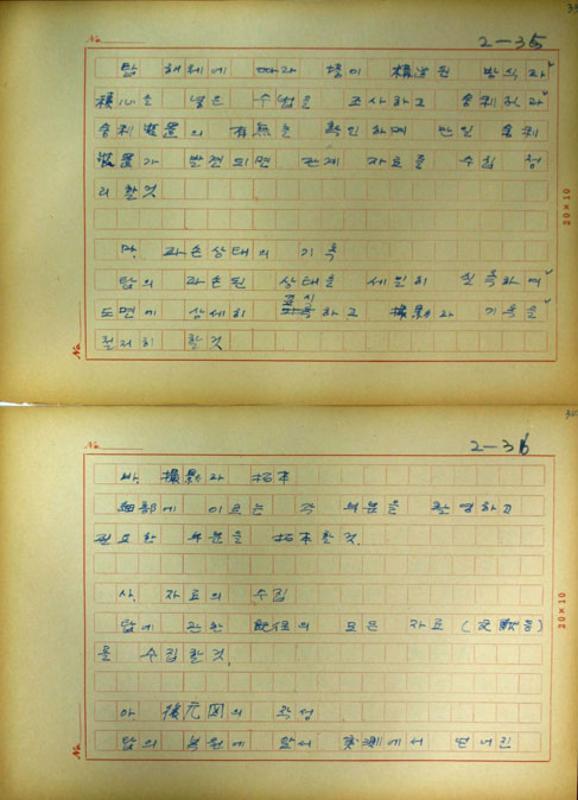 2-35
탑 해체에 따라 塔이 構造된 방식과
積心을 넣은 수법을 조사하고 舍利孔과
舍利裝置의 有無를 확인하며 만일 舍利
裝置가 발견되면 관계 자료를 수집 정
리할것
마. 파손상태의 기록
탑의 파손된 상태를 세밀히 실측하여
표시
도면에 상세히 하고 撮影과 기록을
철저히 할것
No.
20×10
No.
2-36
바. 撮影과 拓本
細部에 이르는 각 부분을 촬영하고
필요한 부분을 拓本할것.
사. 자료의 수집
탑에 관한 既往의 모든 자료 (文献등)
를 수집할것.
아. 後元図의 작성
탑의 복원에 앞서 実測에서 얻어진
No.
20×10